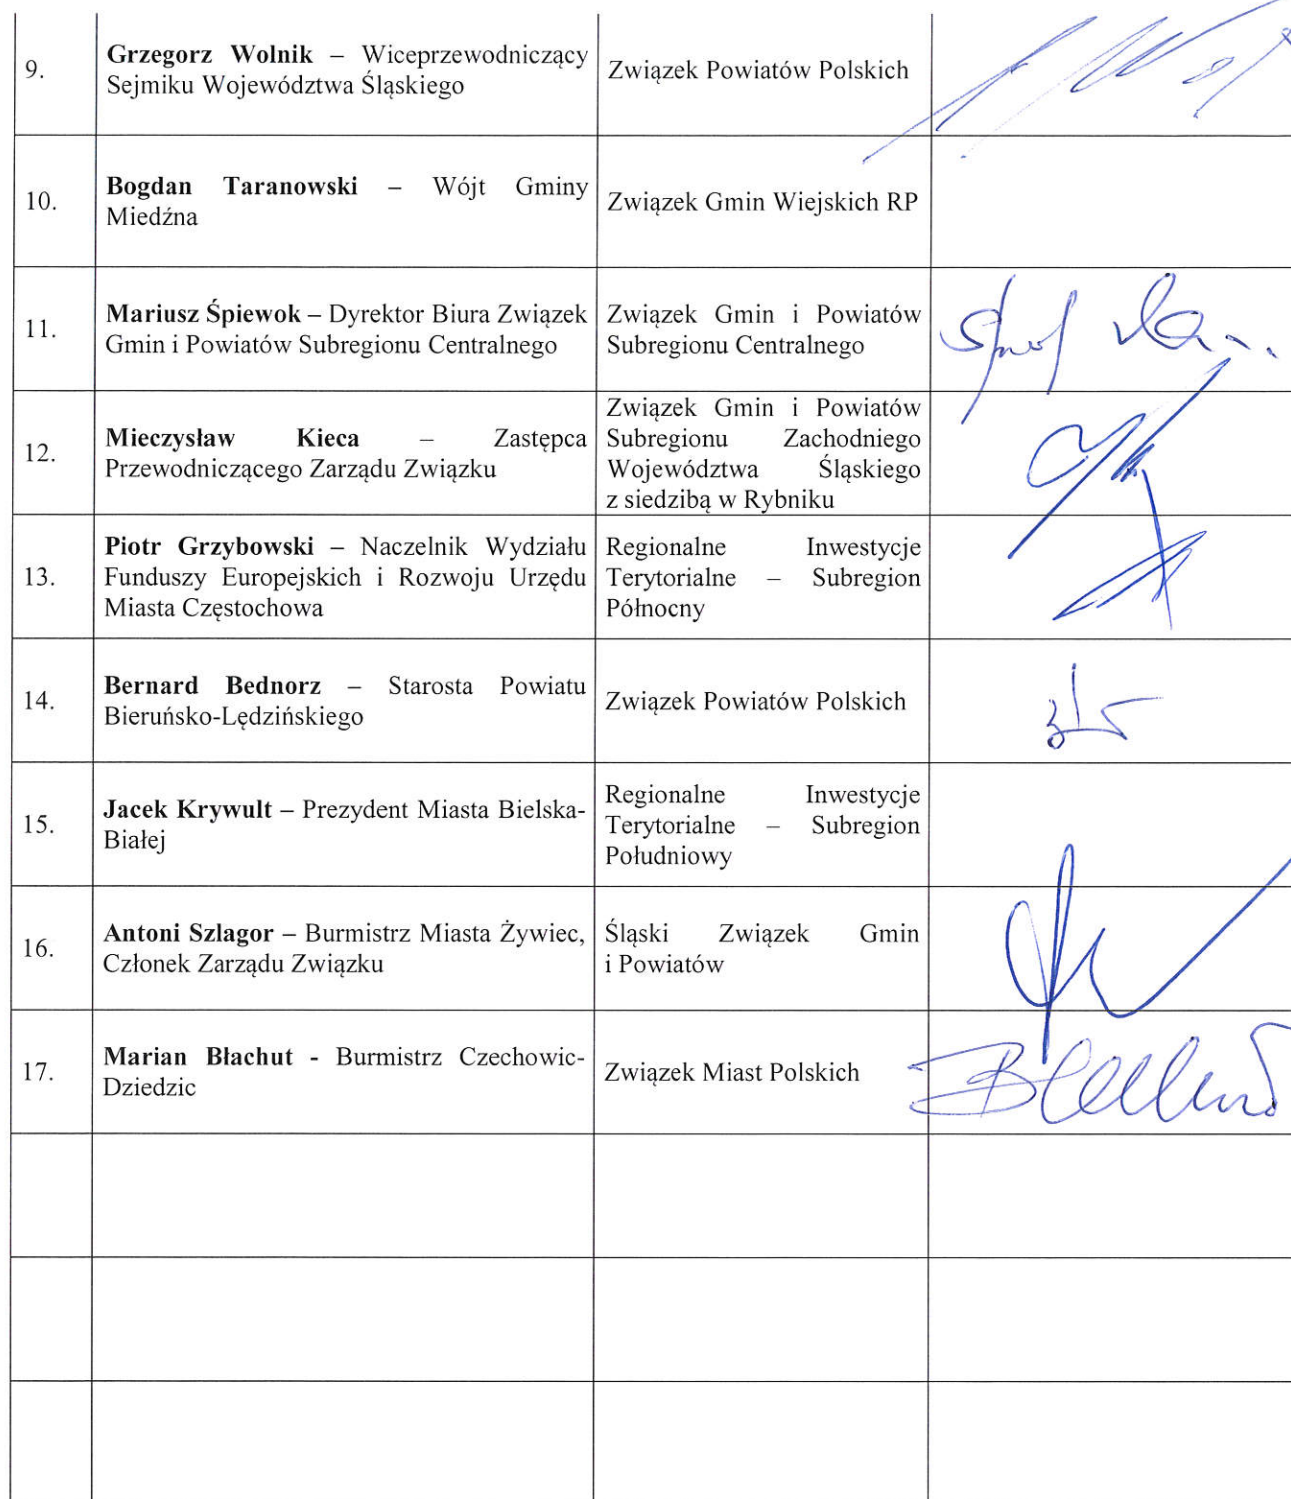 9.
Grzegorz Wolnik – Wiceprzewodniczący
Sejmiku Województwa Śląskiego
Związek Powiatów Polskich
10.
Bogdan Taranowski – Wójt Gminy
Miedźna
Związek Gmin Wiejskich RP
11.
Mariusz Śpiewok – Dyrektor Biura Związek
Gmin i Powiatów Subregionu Centralnego
Związek Gmin i Powiatów
Subregionu Centralnego
12.
Mieczysław Kieca – Zastępca
Przewodniczącego Zarządu Związku
Związek Gmin i Powiatów
Subregionu Zachodniego
Województwa Śląskiego
z siedzibą w Rybniku
13.
Piotr Grzybowski – Naczelnik Wydziału
Funduszy Europejskich i Rozwoju Urzędu
Miasta Częstochowa
Regionalne Inwestycje
Terytorialne – Subregion
Północny
14.
Bernard Bednorz – Starosta Powiatu
Bieruńsko-Lędzińskiego
Związek Powiatów Polskich
15.
Jacek Krywult – Prezydent Miasta Bielska-
Białej
Regionalne Inwestycje
Terytorialne – Subregion
Południowy
16.
Antoni Szlagor – Burmistrz Miasta Żywiec,
Członek Zarządu Związku
Śląski Związek Gmin
i Powiatów
17.
Marian Błachut - Burmistrz Czechowic-
Dziedzic
Związek Miast Polskich